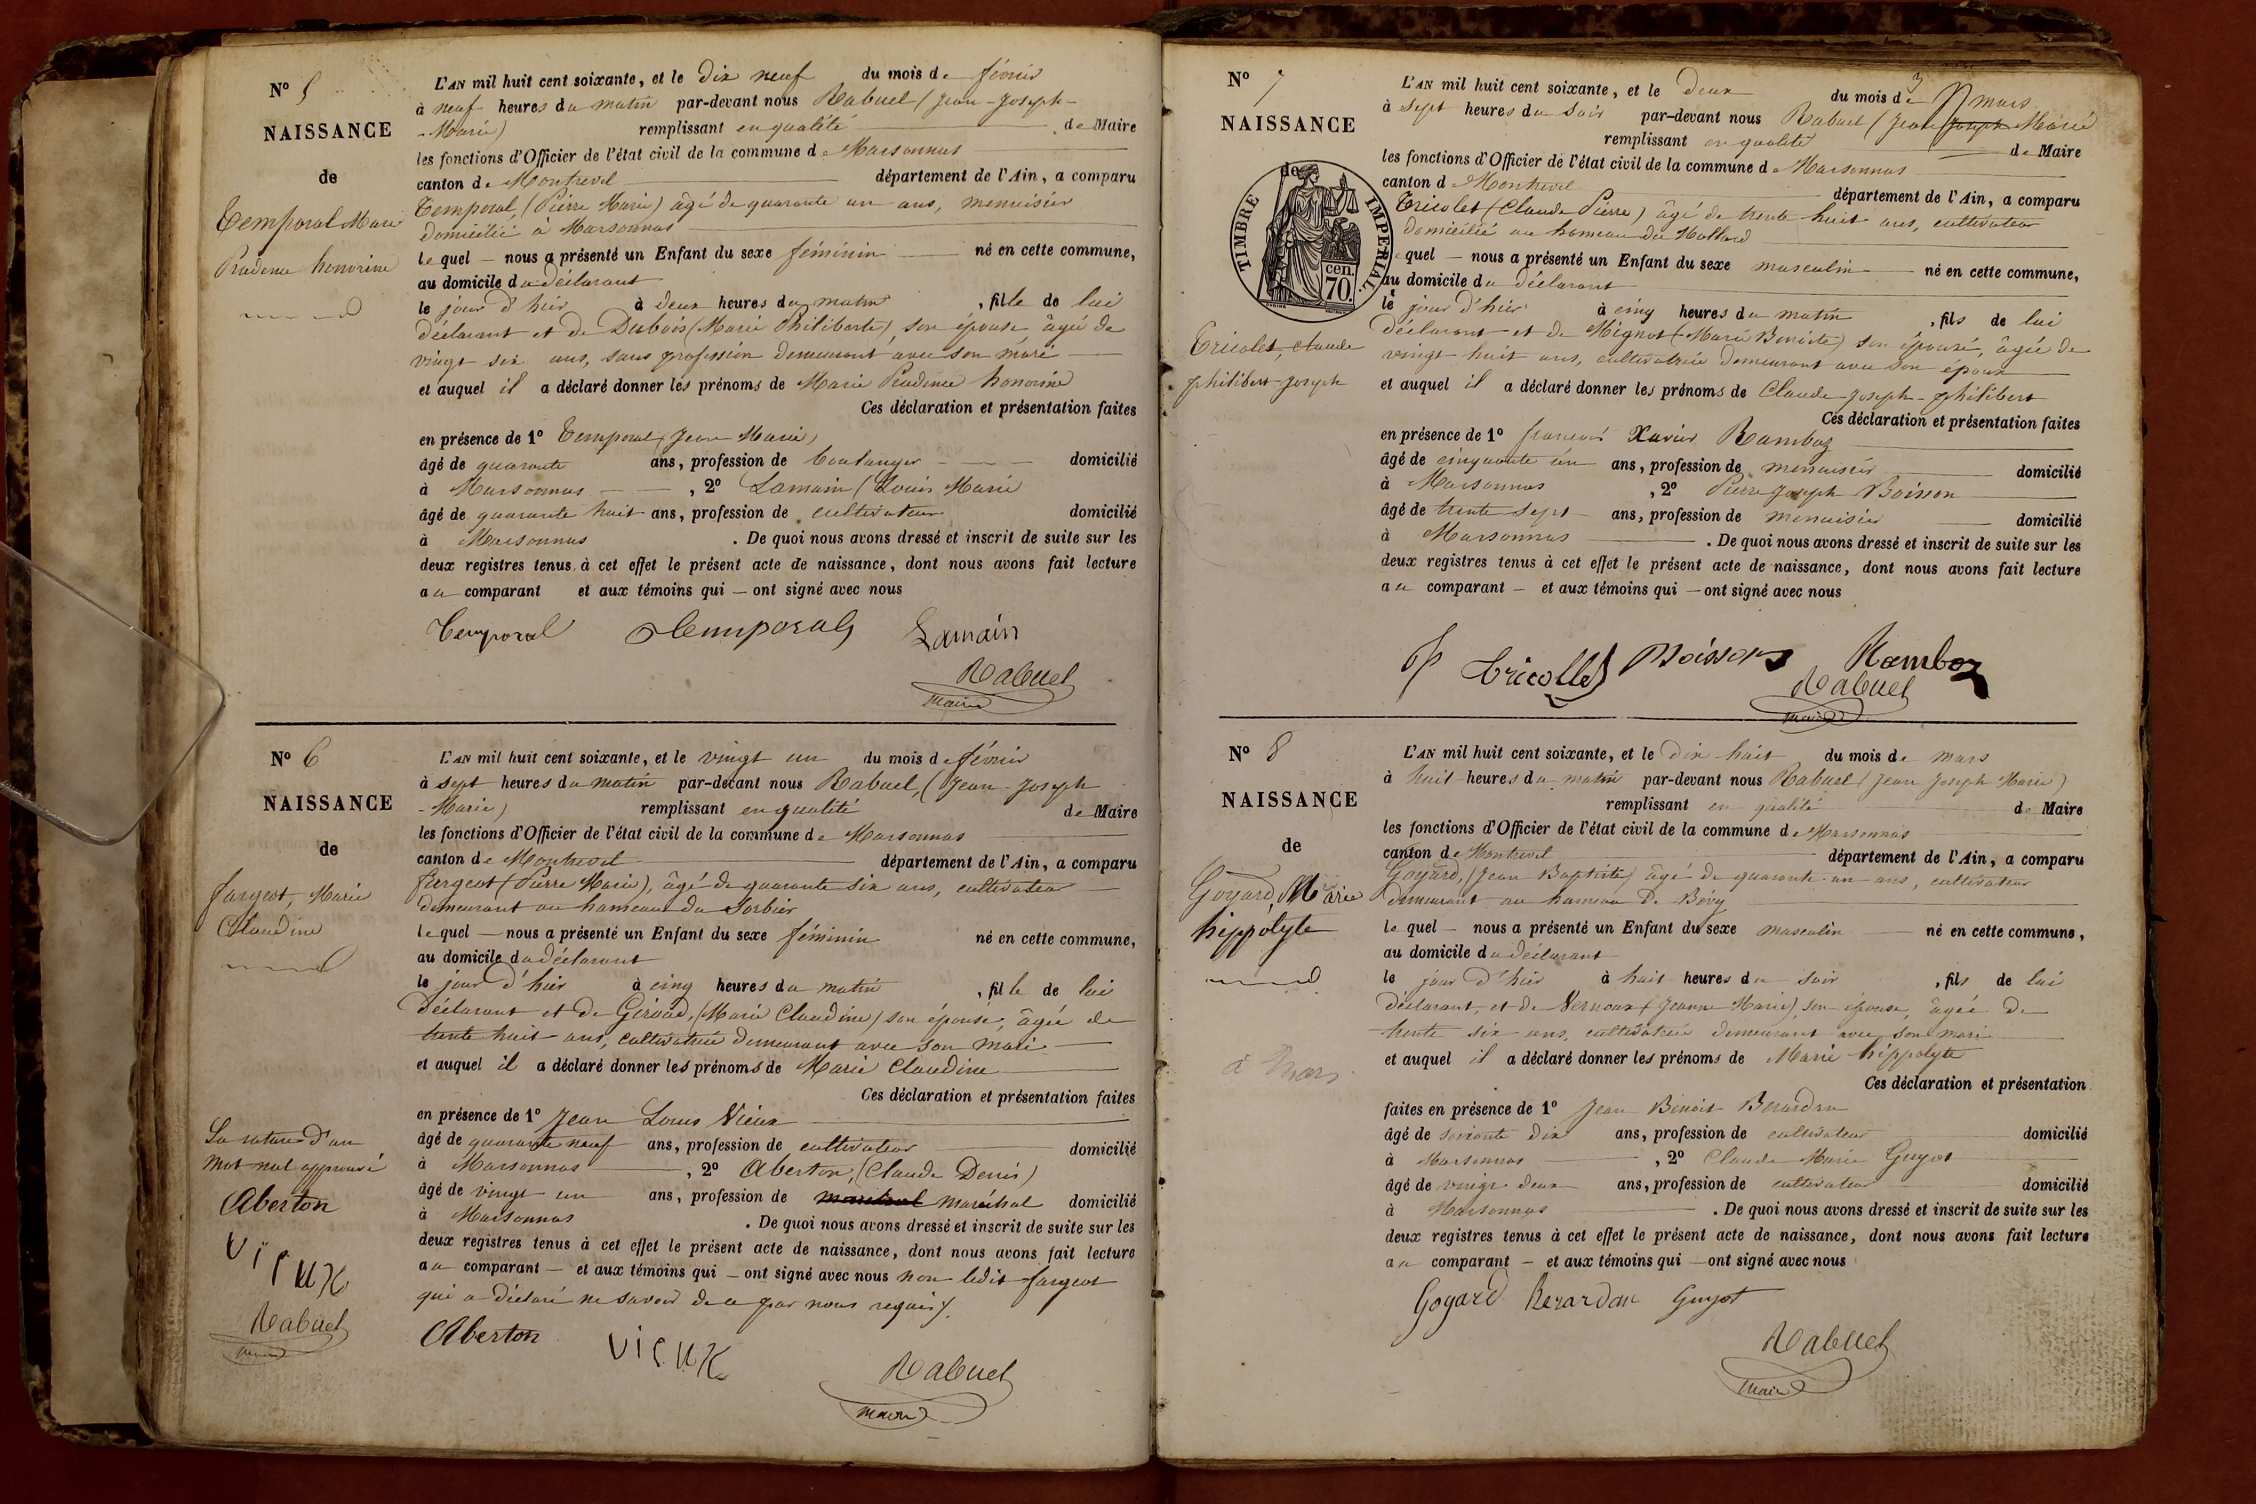 N° 5
NAISSANCE
de
Temporal Marie
Prudence honorine
L'AN mil huit cent soixante, et le dix neuf du mois de février
à neuf heures du matin par-devant nous Rabuel (Jean-Joseph-
-Marie) remplissant en qualité de Maire
les fonctions d'Officier de l'état civil de la commune de Marsonnas
canton de Montrevel département de l'Ain, a comparu
Temporal, (Pierre Marie) âgé de quarante un ans, menuisier
domicilié à Marsonnas
lequel — nous a présenté un Enfant du sexe féminin né en cette commune,
au domicile du déclarant
le jour d'hier à deux heures du matin, fille de lui
déclarant et de Dubois (Marie Philiberte) son épouse âgée de
vingt six ans, sans profession demeurant avec son mari
et auquel il a déclaré donner les prénoms de Marie Prudence honorine
Ces déclaration et présentation faites
en présence de 1° Temporal (Jean Marie)
âgé de quarante ans, profession de boulanger domicilié
à Marsonnas, 2° Lamain (Louis Marie
âgé de quarante huit ans, profession de cultivateur domicilié
à Marsonnas. De quoi nous avons dressé et inscrit de suite sur les
deux registres tenus à cet effet le présent acte de naissance, dont nous avons fait lecture
au comparant et aux témoins qui — ont signé avec nous
Temporal Temporal Lamain
Rabuel
maire
N° 6
NAISSANCE
de
fargeot, Marie
Claudine
La rature d'un
mot nul approuvé
Aberton
Vieux
Rabuel
maire
L'AN mil huit cent soixante, et le vingt un du mois de février
à sept heures du matin par-devant nous Rabuel, (Jean-Joseph
-Marie) remplissant en qualité de Maire
les fonctions d'Officier de l'état civil de la commune de Marsonnas
canton de Montrevel département de l'Ain, a comparu
fargeot (Pierre Marie), âgé de quarante six ans, cultivateur
demeurant au hameau du Sorbier
lequel — nous a présenté un Enfant du sexe féminin né en cette commune,
au domicile du déclarant
le jour d'hier à cinq heures du matin, fille de lui
déclarant et de Giroud, (Marie Claudine) son épouse, âgée de
trente huit ans, cultivatrice demeurant avec son mari
et auquel il a déclaré donner les prénoms de Marie Claudine
Ces déclaration et présentation faites
en présence de 1° Jean Louis Vieux
âgé de quarante neuf ans, profession de cultivateur domicilié
à Marsonnas, 2° Aberton, (Claude Denis)
âgé de vingt un ans, profession de maréchal domicilié
à Marsonnas. De quoi nous avons dressé et inscrit de suite sur les
deux registres tenus à cet effet le présent acte de naissance, dont nous avons fait lecture
au comparant — et aux témoins qui — ont signé avec nous non ledit fargeot
qui a déclaré ne savoir de ce par nous requis.
Aberton Vieux
Rabuel
maire
N° 7
NAISSANCE
de
TIMBRE IMPERIAL
70 cen.
Tricolet, Claude
philibert-joseph
L'AN mil huit cent soixante, et le deux du mois de mars
à sept heures du soir par-devant nous Rabuel (Jean Joseph Marie
remplissant en qualité de Maire
les fonctions d'Officier de l'état civil de la commune de Marsonnas
canton de Montrevel département de l'Ain, a comparu
Tricolet (Claude Pierre) âgé de trente huit ans, cultivateur
domicilié au hameau du Mollard
lequel — nous a présenté un Enfant du sexe masculin né en cette commune,
au domicile du déclarant
le jour d'hier à cinq heures du matin, fils de lui
déclarant et de Mignot (Marie Benoite) son épouse, âgée de
vingt huit ans, cultivatrice demeurant avec son époux
et auquel il a déclaré donner les prénoms de Claude-joseph-philibert
Ces déclaration et présentation faites
en présence de 1° françois Xavier Ramboz
âgé de cinquante un ans, profession de menuisier domicilié
à Marsonnas, 2° Pierre Joseph Boisson
âgé de trente sept ans, profession de menuisier domicilié
à Marsonnas. De quoi nous avons dressé et inscrit de suite sur les
deux registres tenus à cet effet le présent acte de naissance, dont nous avons fait lecture
au comparant — et aux témoins qui — ont signé avec nous
Tricollet Boisson Ramboz
Rabuel
maire
N° 8
NAISSANCE
de
Goyard, Marie
hippolyte
L'AN mil huit cent soixante, et le dix huit du mois de mars
à huit heures du matin par-devant nous Rabuel (Jean Joseph Marie)
remplissant en qualité de Maire
les fonctions d'Officier de l'état civil de la commune de Marsonnas
canton de Montrevel département de l'Ain, a comparu
Goyard, (Jean Baptiste) âgé de quarante-un ans, cultivateur
demeurant au hameau de Bévy
lequel — nous a présenté un Enfant du sexe masculin né en cette commune,
au domicile du déclarant
le jour d'hier à huit heures du soir, fils de lui
déclarant, et de Vernoux (Jeanne Marie) son épouse, âgée de
trente six ans, cultivatrice demeurant avec son mari
et auquel il a déclaré donner les prénoms de Marie hippolyte
Ces déclaration et présentation
faites en présence de 1° Jean Benoit Berardan
âgé de soixante dix ans, profession de cultivateur domicilié
à Marsonnas, 2° Claude Marie Guyot
âgé de vingt deux ans, profession de cultivateur domicilié
à Marsonnas. De quoi nous avons dressé et inscrit de suite sur les
deux registres tenus à cet effet le présent acte de naissance, dont nous avons fait lecture
au comparant — et aux témoins qui — ont signé avec nous
Goyard Berardan Guyot
Rabuel
maire